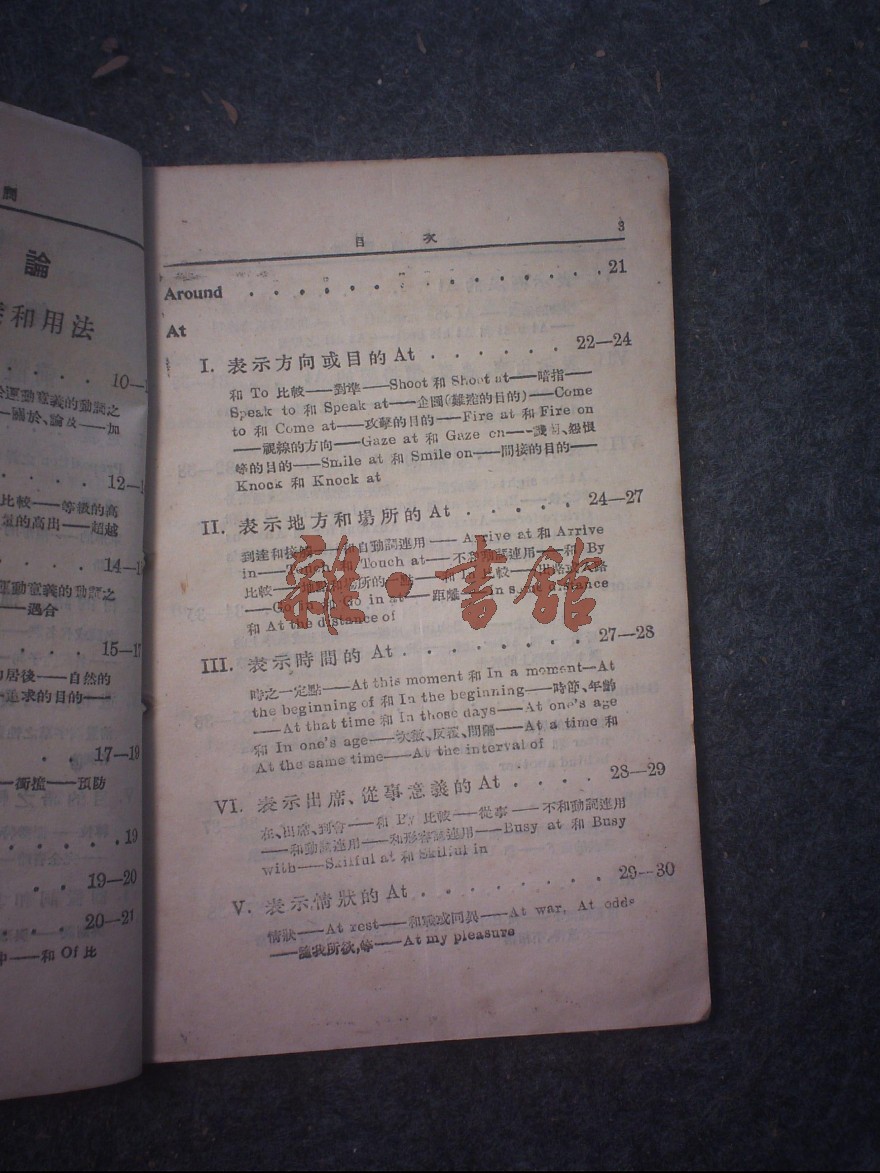 詞
論
和用法
10—1
運動意義的動詞之
關於、論及——加
12—
比較——等級的高
的高出——超越
14—1
運動意義的動詞之
——遇合
15—17
居後——自然的
追求的目的——
17—19
衝撞——預防
19
19—20
20—21
——和 Of 比
目 次 3
Around . . . . . . . . . . . . . . . . 21
At
I. 表示方向或目的 At . . . . . . 22—24
和 To 比較——對準——Shoot 和 Shoot at——暗指——
Speak to 和 Speak at——企圖(難達的目的)——Come
to 和 Come at——攻擊的目的——Fire at 和 Fire on
——視線的方向——Gaze at 和 Gaze on——譏 、怨恨
等的目的——Smile at 和 Smile on——間接的目的——
Knock 和 Knock at
II. 表示地方和場所的 At . . . . . 24—27
到達和接觸——和自動詞連用——Arrive at 和 Arrive
in——Touch 和 Touch at——不 動詞連用——和 By
比較—— 場所的一點——和 To 比較——
——Go in 和 Go in at——距離——In distance
和 At the distance of
雜·書館
III. 表示時間的 At . . . . . . . . 27—28
時之一定點——At this moment 和 In a moment—At
the beginning of 和 In the beginning——時節、年齡
——At that time 和 In those days——At one's age
和 In one's age——次數、反覆、間隔——At a time 和
At the same time——At the interval of
VI. 表示出席、從事意義的 At . . . . 28—29
在、出席、到會——和 By 比較——從事——不和動詞連用
——和動詞連用——和形容詞連用——Busy at 和 Busy
with——Skilful at 和 Skilful in
V. 表示情狀的 At . . . . . . . . 29—30
情狀——At rest——和戰或同異——At war, At odds
——論我所欲,等——At my pleasure